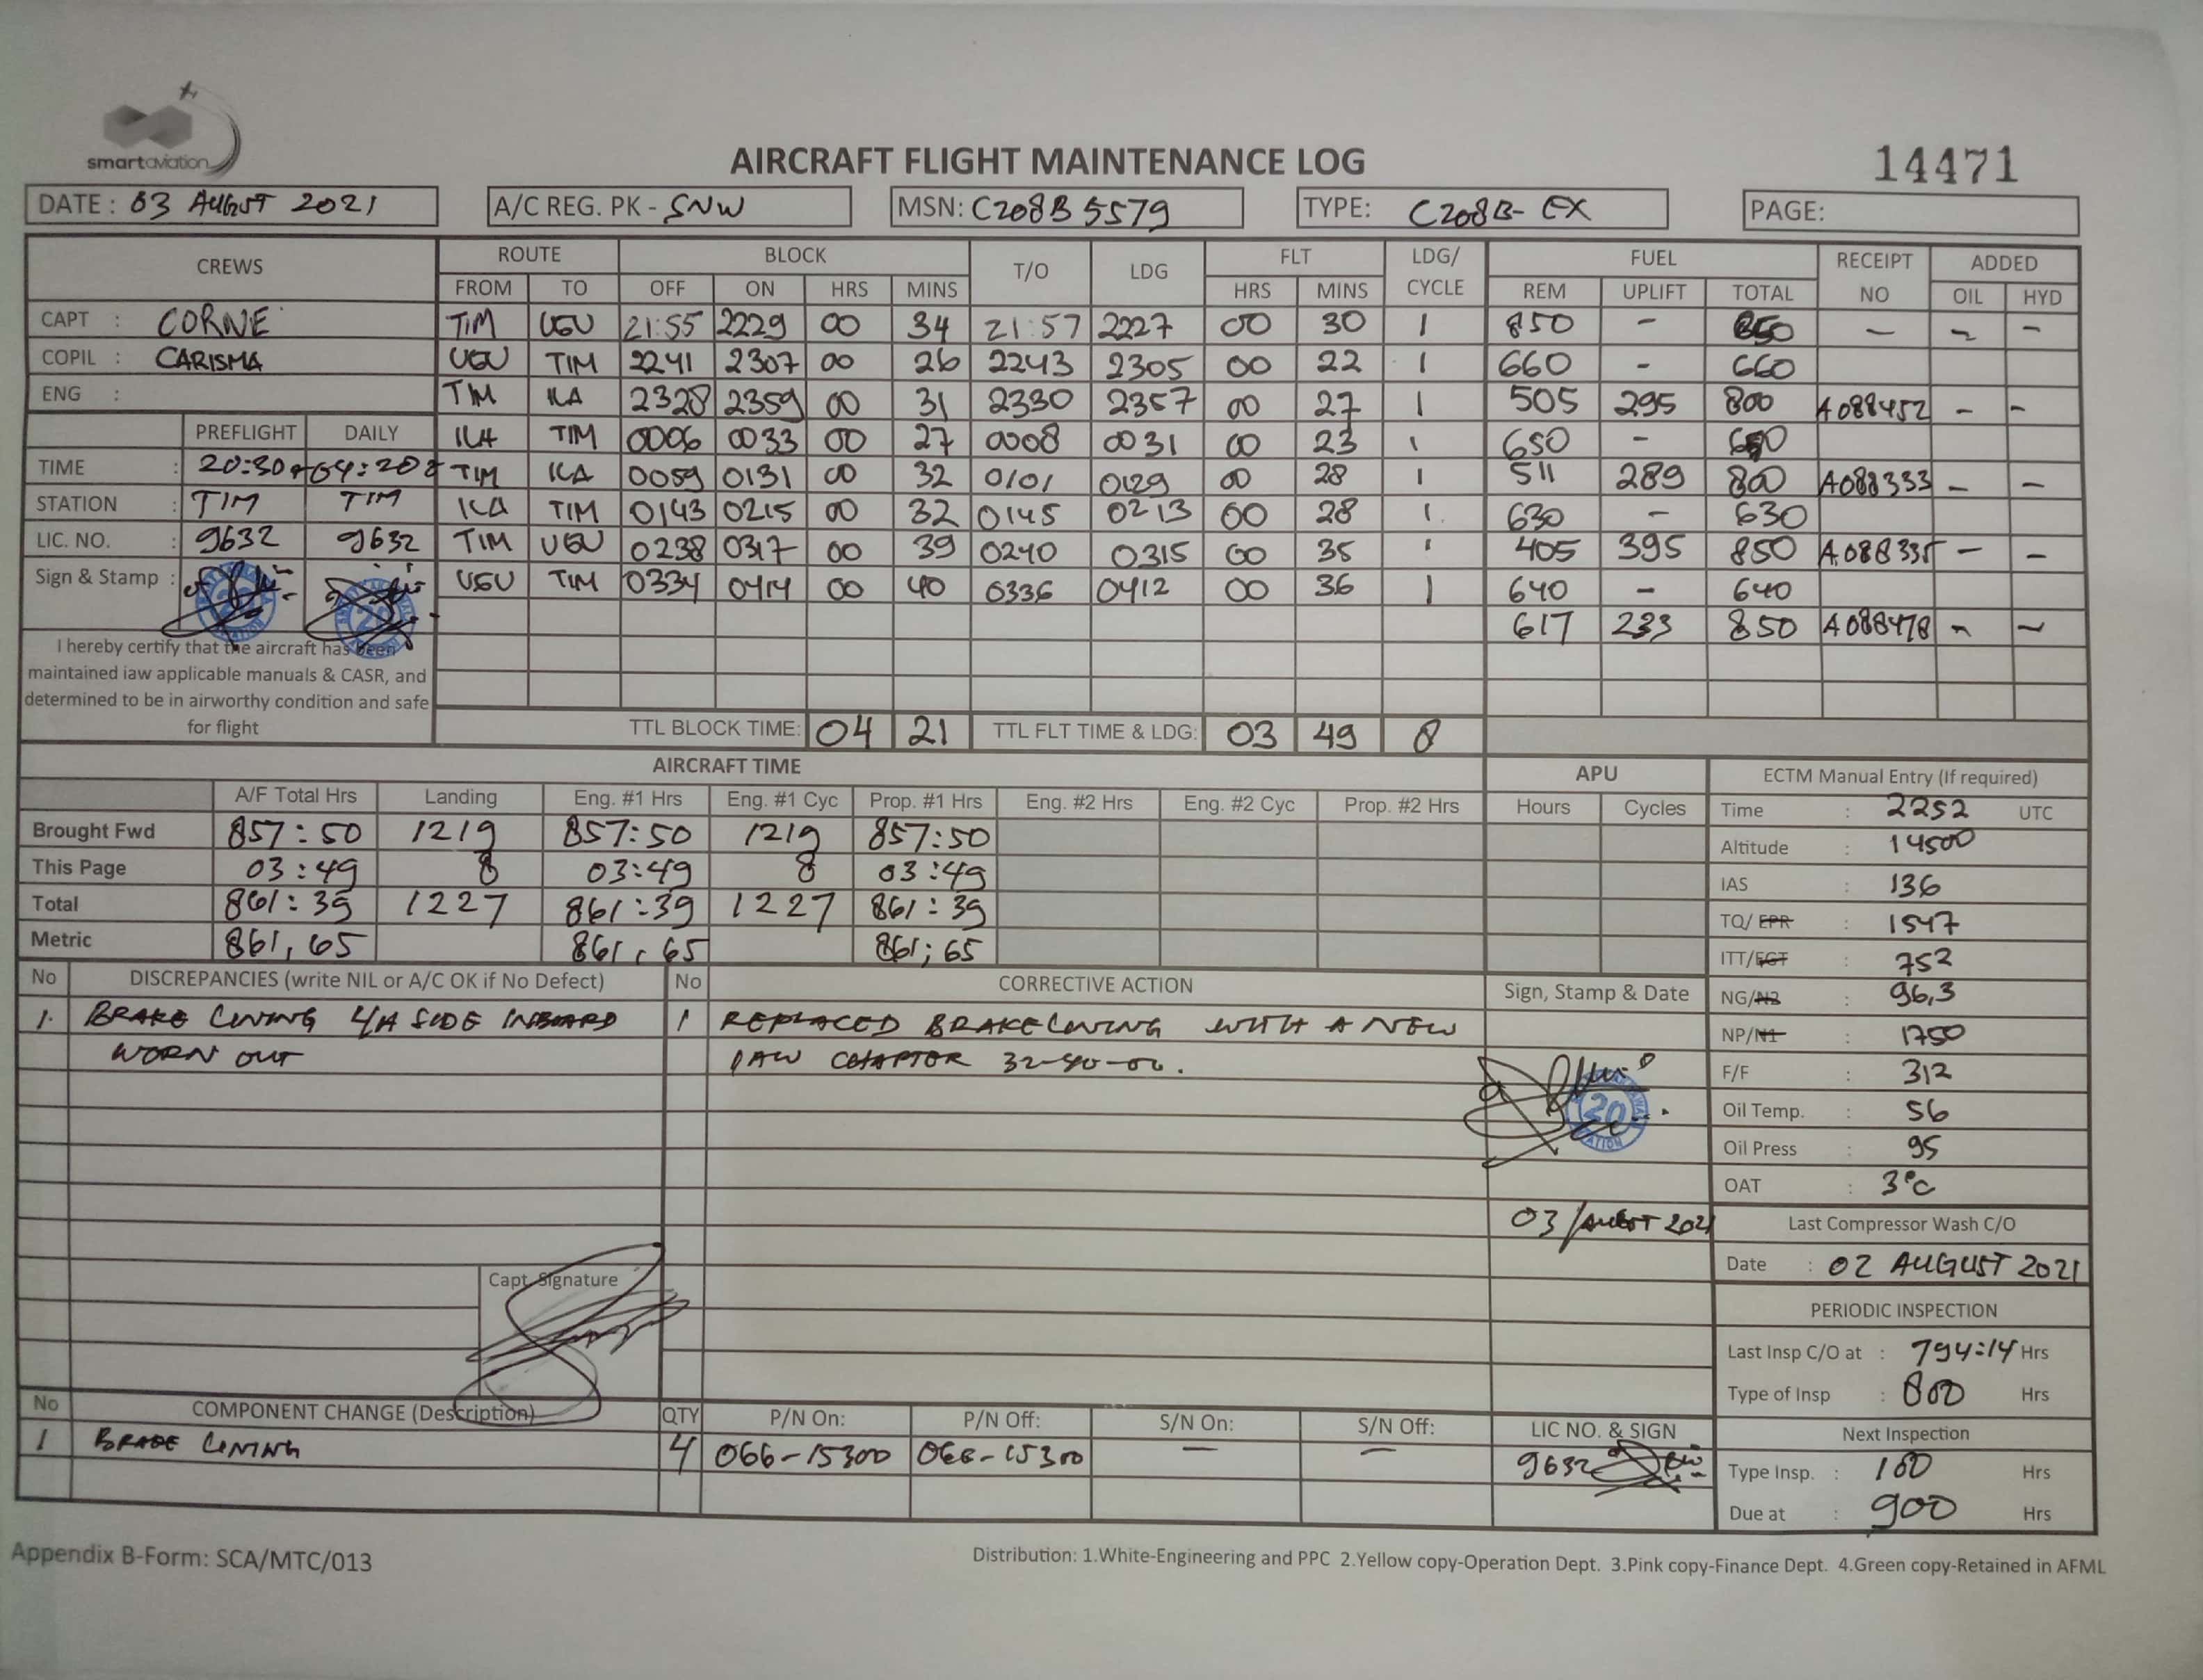 smartaviation
AIRCRAFT FLIGHT MAINTENANCE LOG
14471
DATE : 03 AUGUST 2021 A/C REG. PK - SNW MSN: C208B 5579 TYPE: C208B- EX PAGE:
CREWS ROUTE BLOCK T/O LDG FLT LDG/ CYCLE FUEL RECEIPT NO ADDED
FROM TO OFF ON HRS MINS HRS MINS REM UPLIFT TOTAL OIL HYD
CAPT : CORNE TIM UGU 21:55 2229 00 34 21:57 2227 00 30 1 850 - 850 - - -
COPIL : CARISMA UGU TIM 2241 2307 00 26 2243 2305 00 22 1 660 - 660
ENG : TIM ILA 2328 2359 00 31 2330 2357 00 27 1 505 295 800 A088452 - -
PREFLIGHT DAILY ILA TIM 0006 0033 00 27 0008 0031 00 23 1 650 - 650
TIME : 20:30 04:20 TIM ILA 0059 0131 00 32 0101 0129 00 28 1 511 289 800 A088333 - -
STATION : TIM TIM ILA TIM 0143 0215 00 32 0145 0213 00 28 1 630 - 630
LIC. NO. : 9632 9632 TIM UGU 0238 0317 00 39 0240 0315 00 35 1 405 395 850 A088335 - -
Sign & Stamp : UGU TIM 0334 0414 00 40 0336 0412 00 36 1 640 - 640
617 233 850 A088478 - -
I hereby certify that the aircraft has been
maintained iaw applicable manuals & CASR, and
determined to be in airworthy condition and safe
for flight
TTL BLOCK TIME: 04 21 TTL FLT TIME & LDG: 03 49 8
AIRCRAFT TIME APU ECTM Manual Entry (If required)
A/F Total Hrs Landing Eng. #1 Hrs Eng. #1 Cyc Prop. #1 Hrs Eng. #2 Hrs Eng. #2 Cyc Prop. #2 Hrs Hours Cycles Time : 2252 UTC
Brought Fwd 857:50 1219 857:50 1219 857:50 Altitude : 14500
This Page 03:49 8 03:49 8 03:49 IAS : 136
Total 861:39 1227 861:39 1227 861:39 TQ/ EPR : 1547
Metric 861,65 861,65 861,65 ITT/EGT : 752
No DISCREPANCIES (write NIL or A/C OK if No Defect) No CORRECTIVE ACTION Sign, Stamp & Date NG/N2 96,3
1. BRAKE LINING L/H SIDE INBOARD 1 REPLACED BRAKE LINING WITH A NEW NP/N1 1750
WORN OUT IAW CHAPTOR 32-40-00. F/F : 312
20
Oil Temp. : 56
Oil Press : 95
OAT : 3°C
03/AUGUST 2021 Last Compressor Wash C/O
Date : 02 AUGUST 2021
Capt. Signature
PERIODIC INSPECTION
Last Insp C/O at : 794:14 Hrs
Type of Insp : 800 Hrs
No COMPONENT CHANGE (Description) QTY P/N On: P/N Off: S/N On: S/N Off: LIC NO. & SIGN Next Inspection
1 BRAKE LINING 4 066-15300 066-15300 - - 9632 Type Insp. : 100 Hrs
Due at : 900 Hrs
Appendix B-Form: SCA/MTC/013 Distribution: 1.White-Engineering and PPC 2.Yellow copy-Operation Dept. 3.Pink copy-Finance Dept. 4.Green copy-Retained in AFML